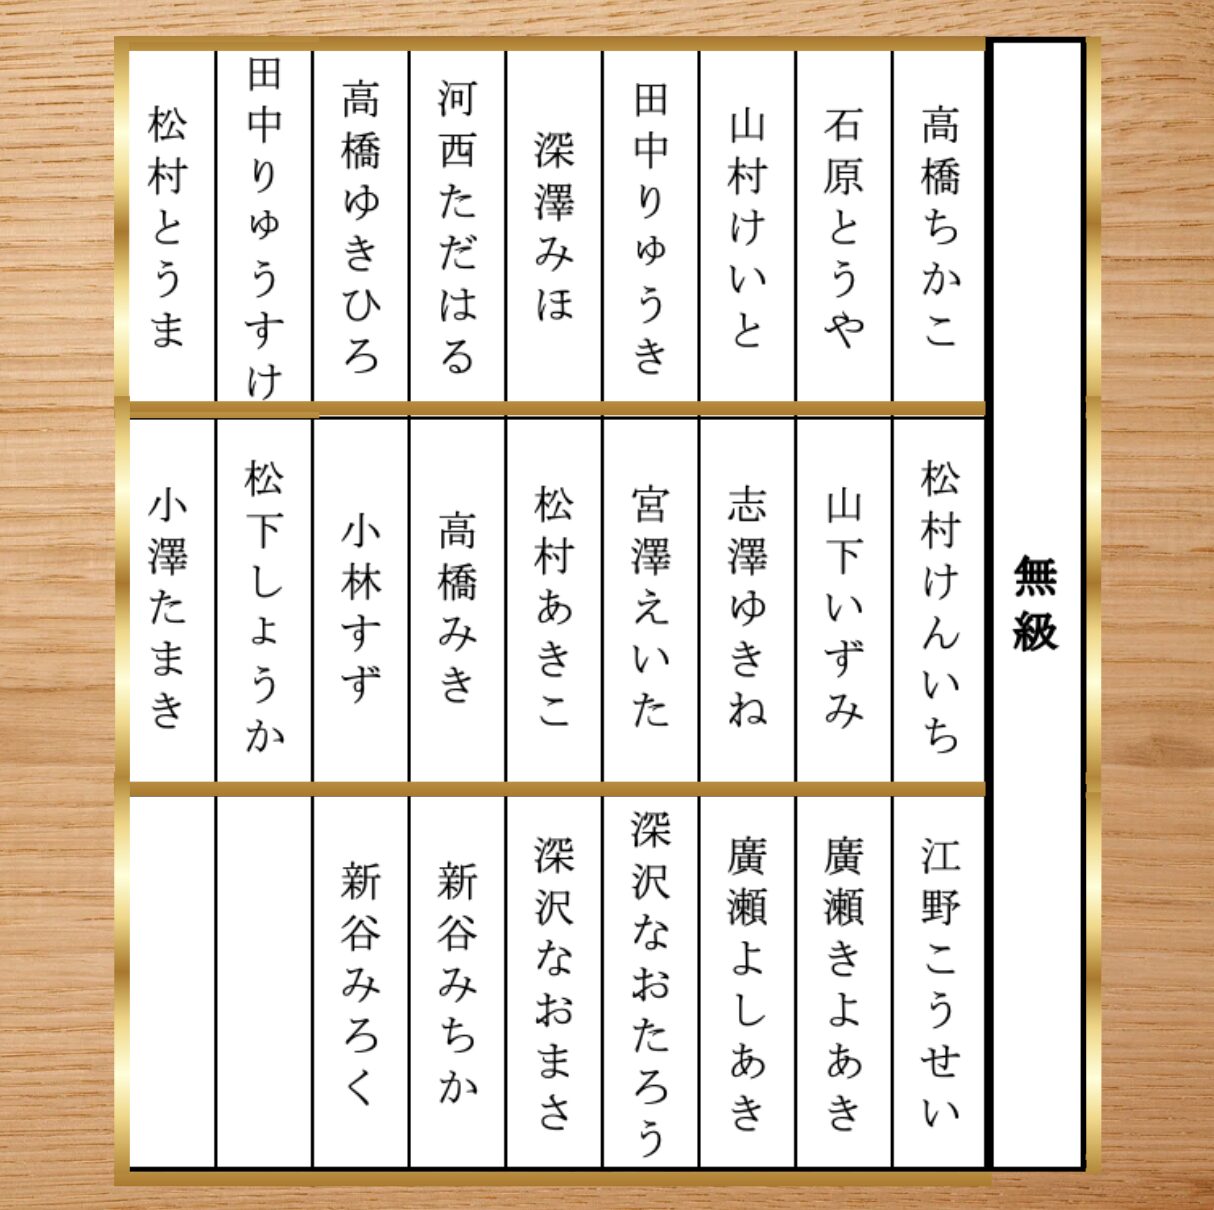 無級
高橋ちかこ
石原とうや
山村けいと
田中りゅうき
深澤みほ
河西ただはる
高橋ゆきひろ
田中りゅうすけ
松村とうま
松村けんいち
山下いずみ
志澤ゆきね
宮澤えいた
松村あきこ
高橋みき
小林すず
松下しょうか
小澤たまき
江野こうせい
廣瀬きよあき
廣瀬よしあき
深沢なおたろう
深沢なおまさ
新谷みちか
新谷みろく